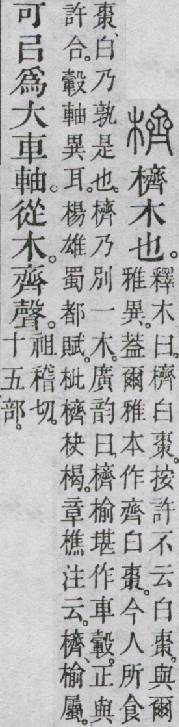 櫅 櫅木也。
釋木曰。櫅白棗。按許不云白棗。與爾
雅異。葢爾雅本作齊白棗。今人所食
棗、白乃孰是也。櫅乃別一木。廣韵曰。櫅榆堪作車轂。正與
許合。轂軸異耳。楊雄蜀都賦。枇櫅楬。章樵注云。櫅、榆屬。
可㠯爲大車軸。從木。齊聲。
祖稽切。
十五部。